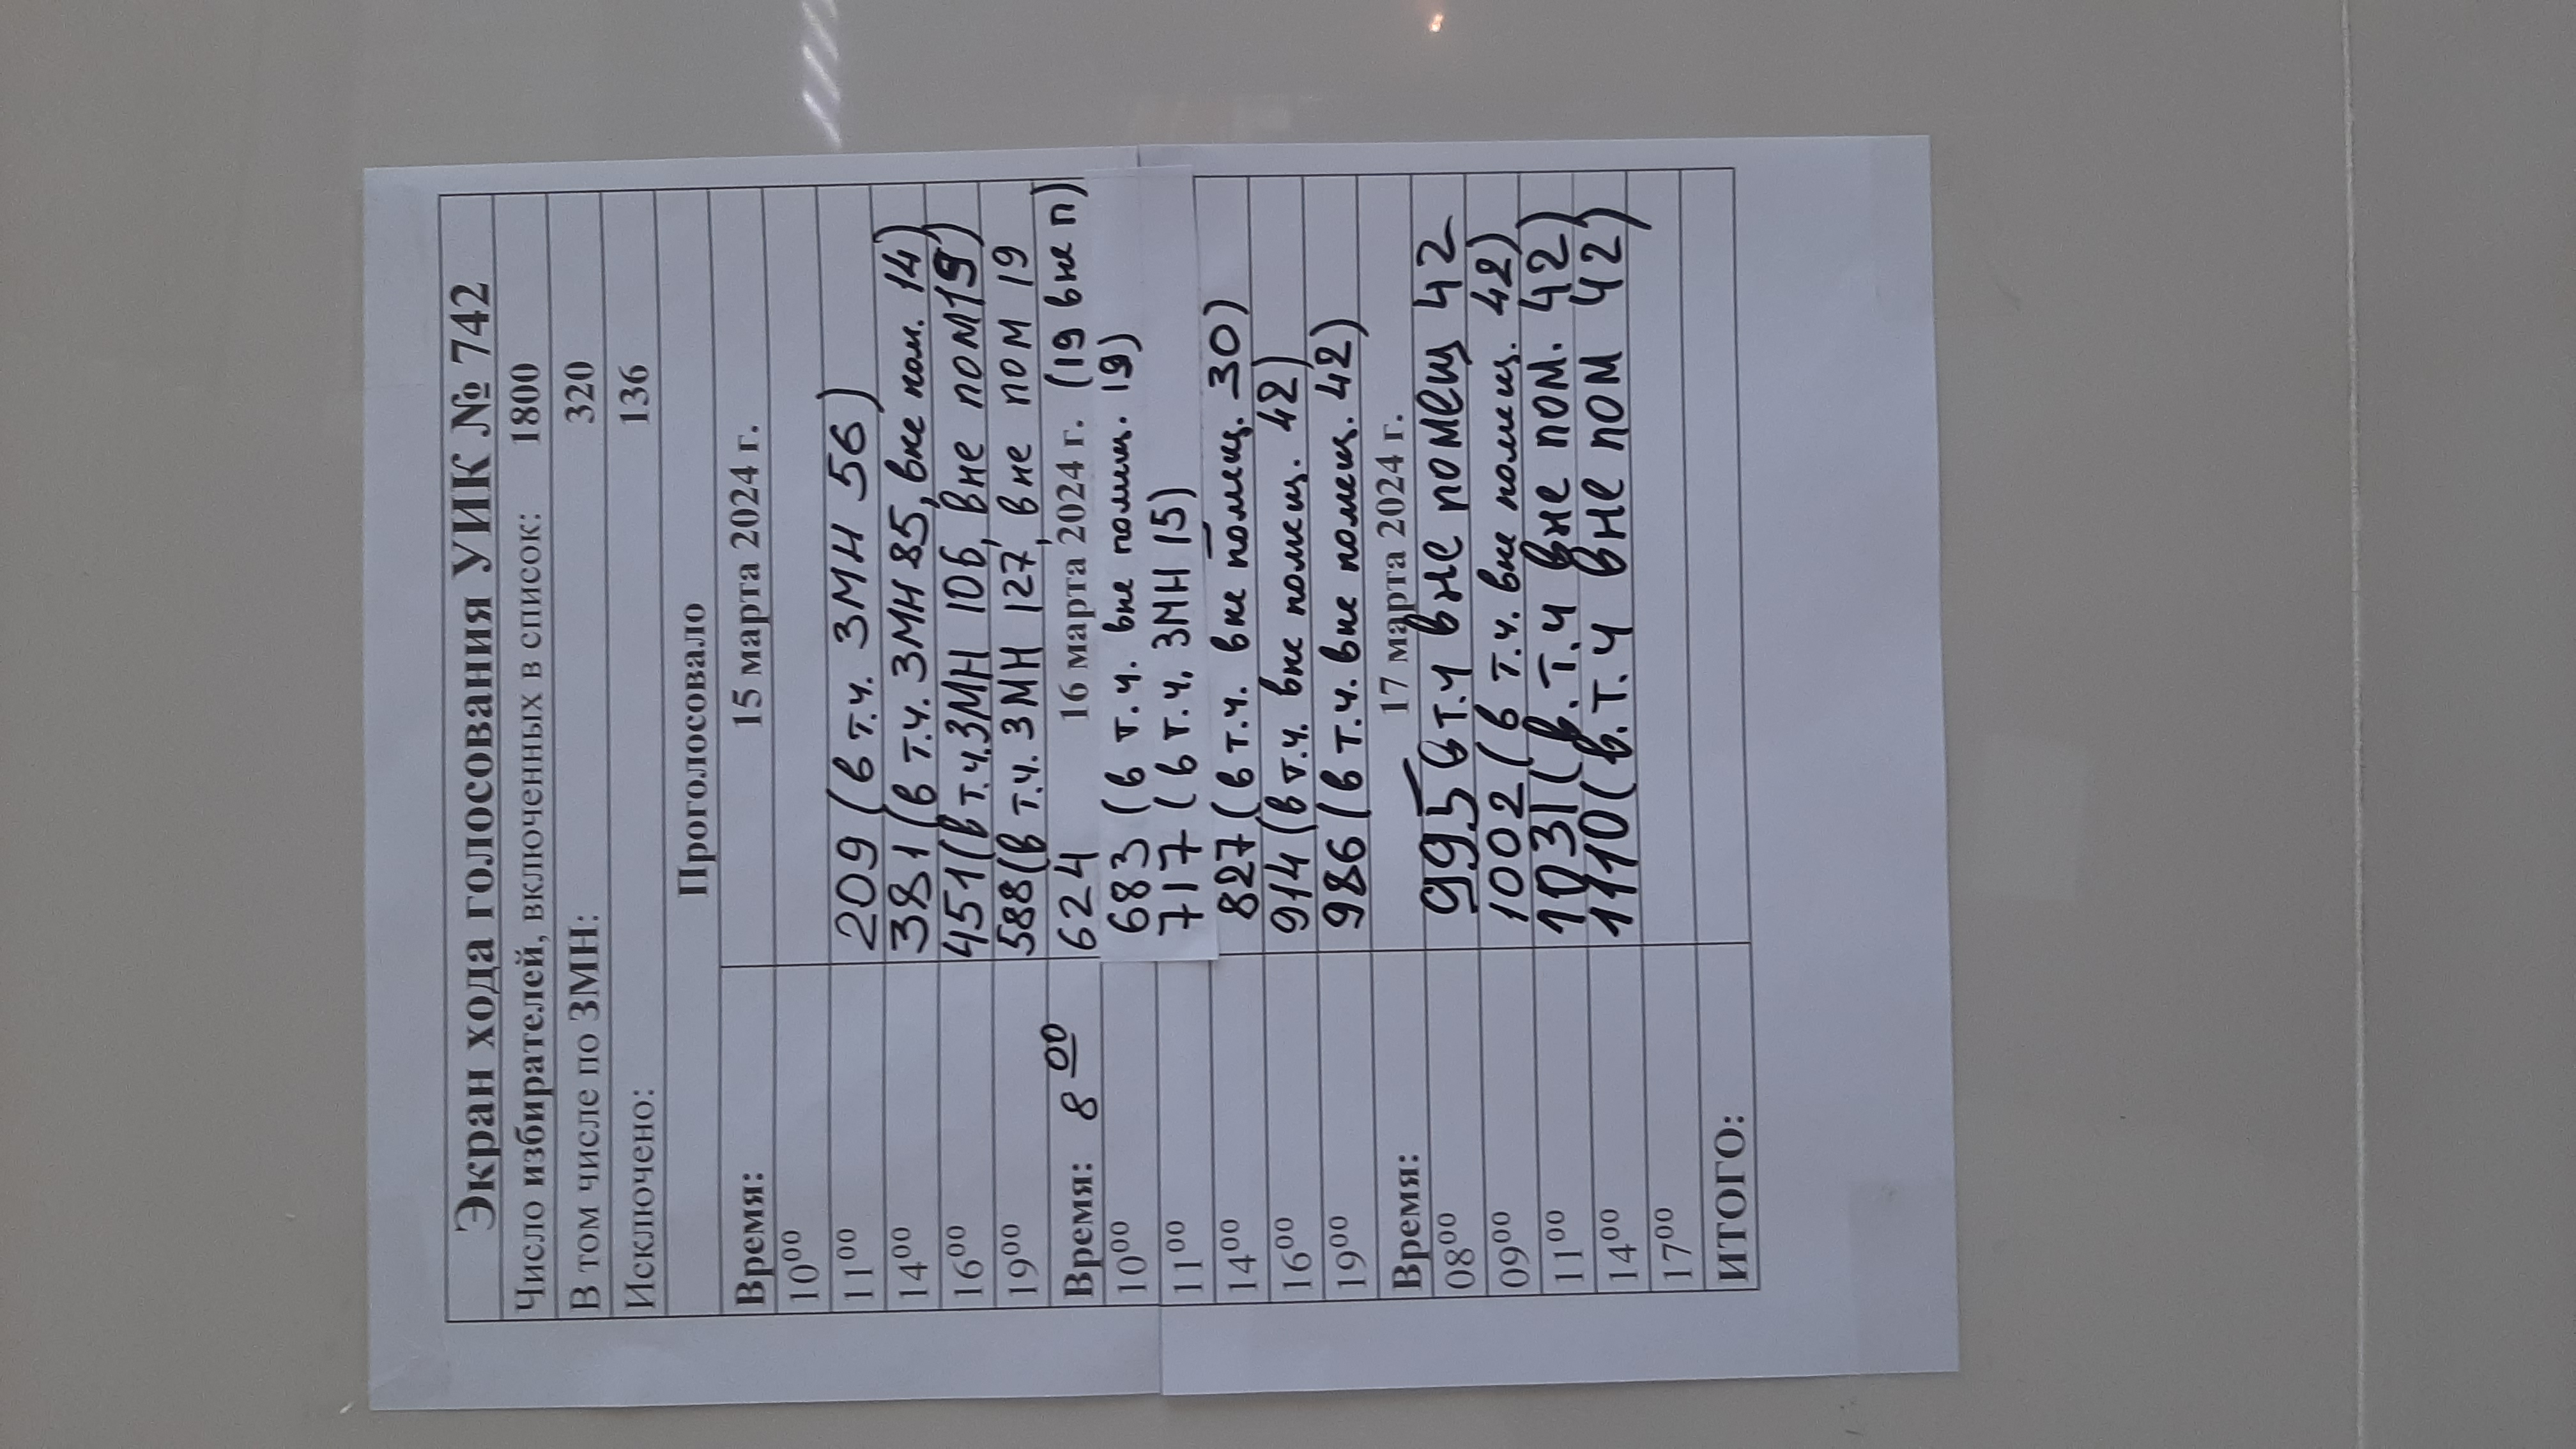 Экран хода голосования УИК № 742
Число избирателей, включенных в список: 1800
В том числе по ЗМН: 320
Исключено: 136
Проголосовало
Время: 15 марта 2024 г.
10⁰⁰
11⁰⁰ 209 (в т.ч. ЗМН 56)
14⁰⁰ 381 (в т.ч. ЗМН 85, вне пом. 14)
16⁰⁰ 451 (в т.ч. ЗМН 106, вне пом 19)
19⁰⁰ 588 (в т.ч. ЗМН 127, вне пом 19
Время: 8⁰⁰ 624 16 марта 2024 г. (19 вне п)
10⁰⁰ 683 (в т.ч. вне помещ. 19)
11⁰⁰ 717 (в т.ч. ЗМН 15)
14⁰⁰ 827 (в т.ч. вне помещ. 30)
16⁰⁰ 914 (в т.ч. вне помещ. 42)
19⁰⁰ 986 (в т.ч. вне помещ. 42)
Время: 17 марта 2024 г.
08⁰⁰ 995 (в т.ч вне помещ 42
09⁰⁰ 1002 (в т.ч. вне помещ. 42)
11⁰⁰ 1031 (в. т.ч вне пом. 42)
14⁰⁰ 1110 (в. т.ч вне пом 42)
17⁰⁰
ИТОГО: